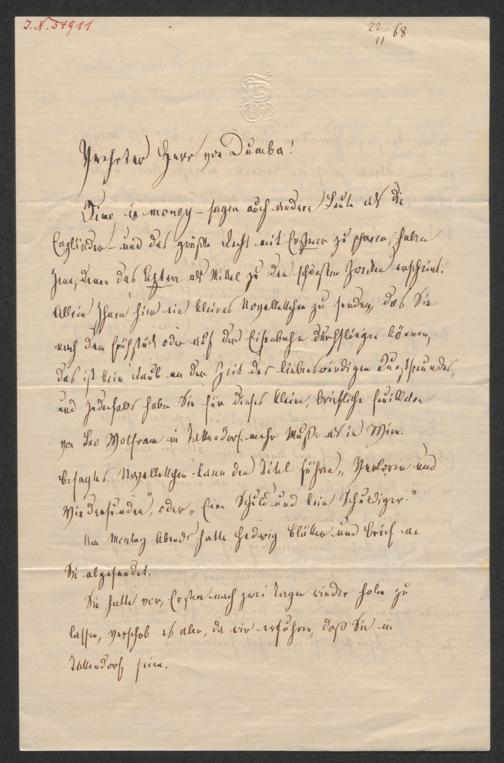 I. N. 54911
22/11 68
Verehrter Herr von Dumba!
Time is money – sagen auch andere Leute als die
Engländer – und das größte Recht mit Ersterer zu sparen, haben
jene, denen das Letztere als Mittel zu den schönsten Zwecken erscheint.
Allein Ihnen hier ein kleines Novellettchen zu senden, das Sie
nach dem Frühstück oder auf der Eisenbahn durchfliegen können,
das ist kein Raub an der Zeit des liebenswürdigen Kunstfreundes,
und jedenfalls haben Sie für dieses kleine, briefliche Feuilleton
von Leo Wolfram in Tattendorf mehr Muße als in Wien.
Besagtes Novellettchen kann den Titel führen „Verloren und
Wiedergefunden", oder „Eine Schuld und kein Schuldiger."
Am Montag Abends hatte Hedwig Blätter und Brief an
Sie abgesendet.
Sie hatte vor, Erstere nach zwei Tagen wieder holen zu
lassen, verschob es aber, da wir erfuhren, daß Sie in
Tattendorf seien.